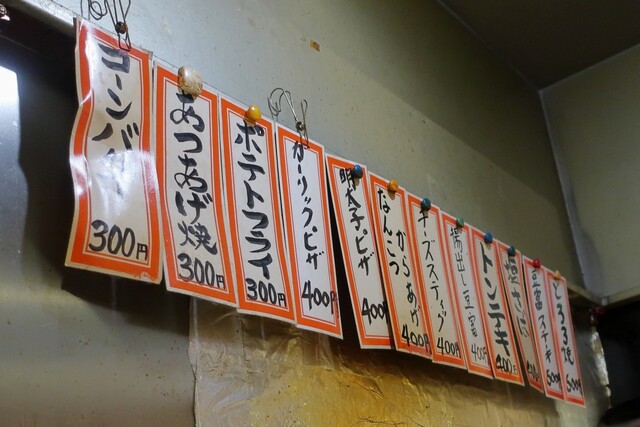 コーンバター
300円
あつあげ焼
300円
ポテトフライ
300円
ガーリックピザ
400円
明太子ピザ
400
なんこつ
からあげ
400円
チーズスティック
400円
揚出し豆富
400円
トンテキ
400円
豆富ステーキ
500円
とろろ焼
500円